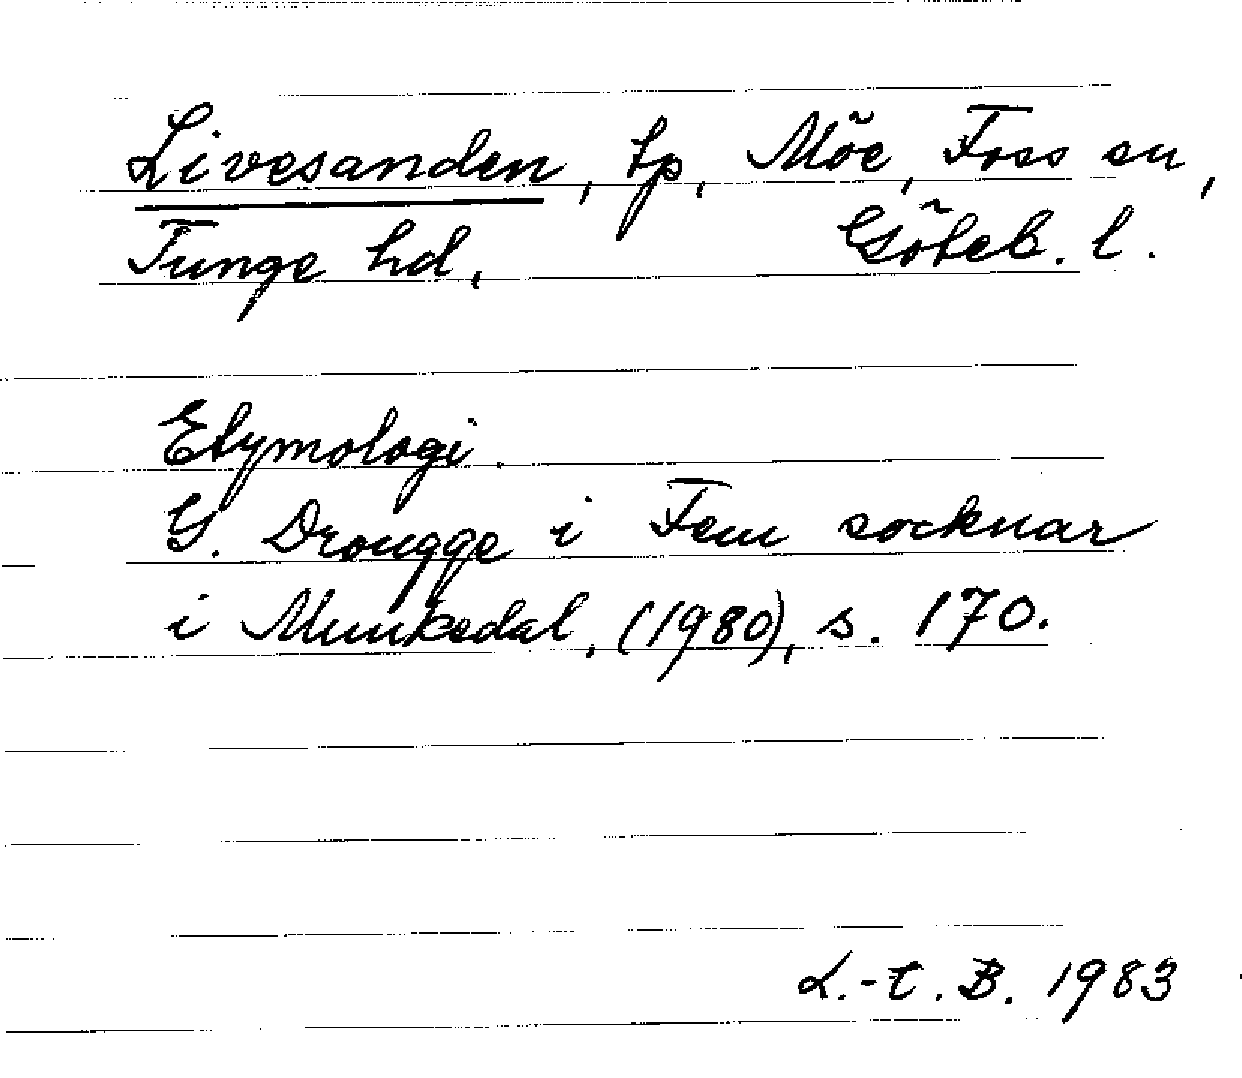 Livesanden, tp, Möe, Foss sn,
Tunge hd, Göteb. l.
Etymologi.
G. Drougge i Fem socknar
i Munkedal, (1980), s. 170.
L.-E. B. 1983